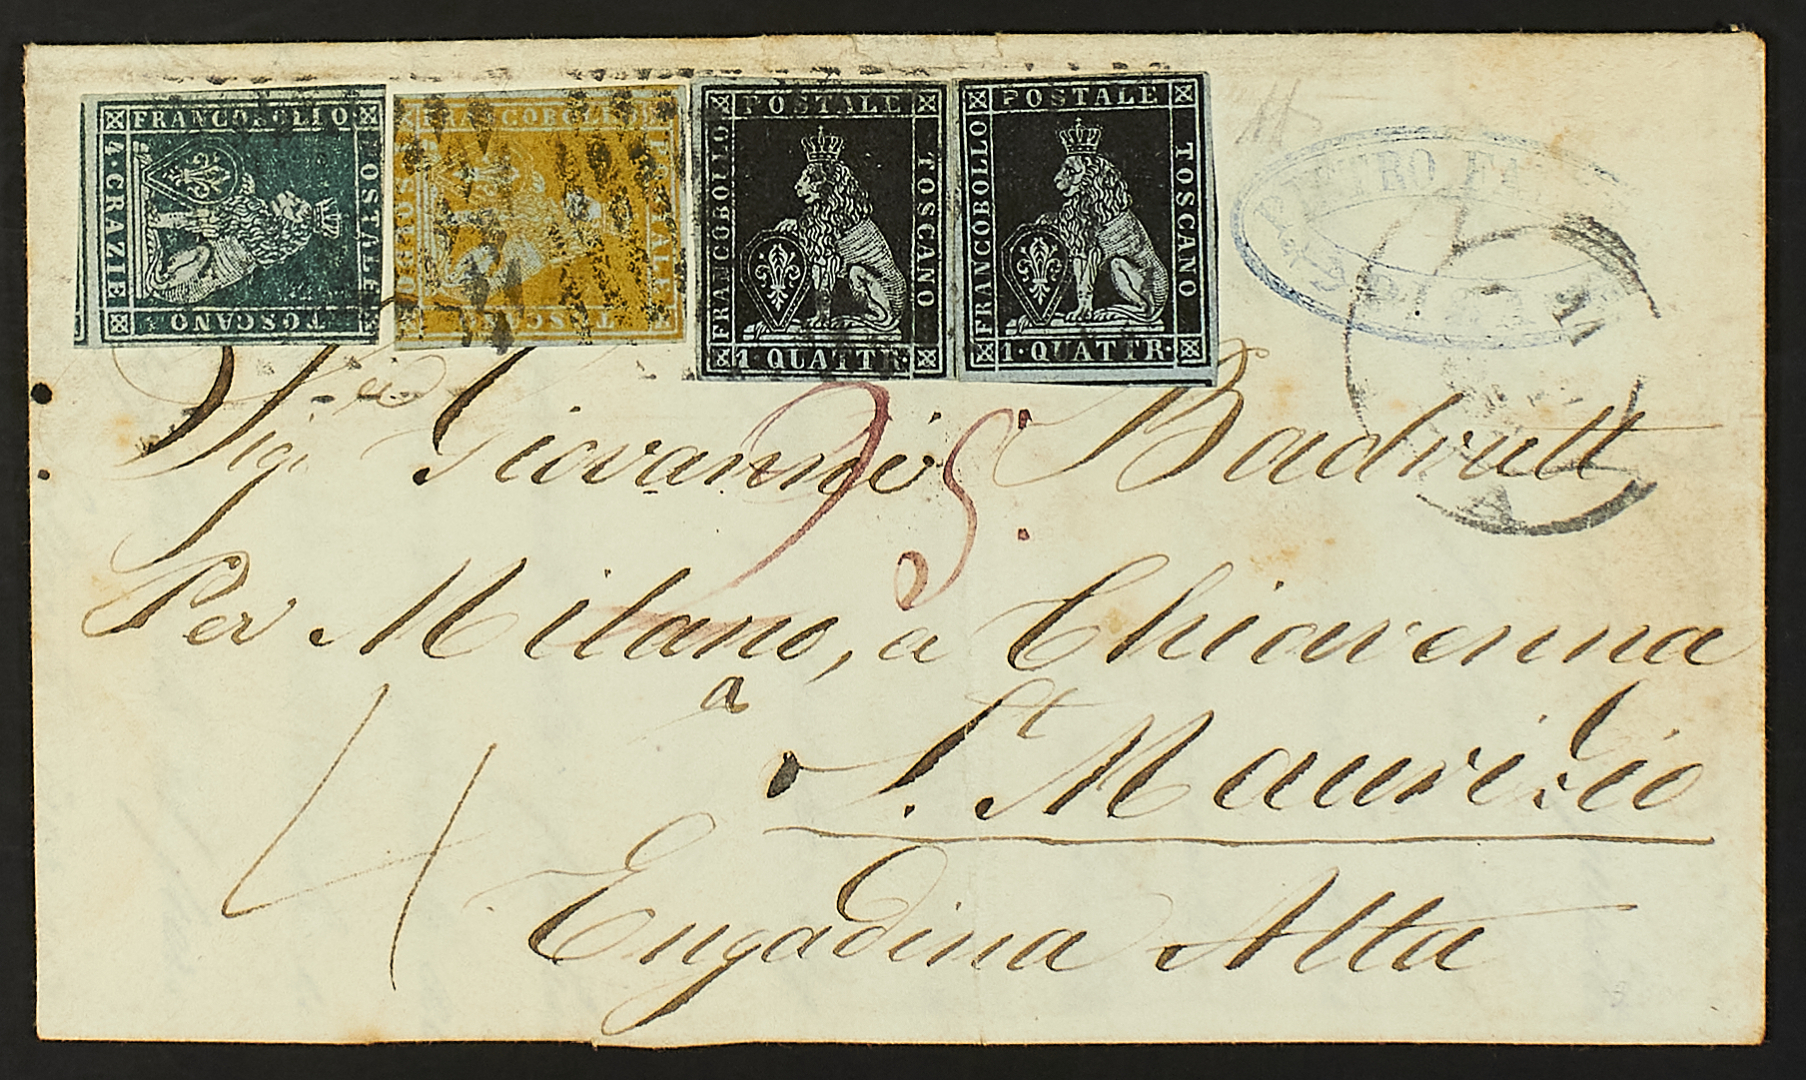 FRANCOBOLLO
POSTALE
TOSCANO
4·CRAZIE
FRANCOBOLLO
POSTALE
TOSCANO
POSTALE
FRANCOBOLLO
TOSCANO
1 QUATTR·
POSTALE
FRANCOBOLLO
TOSCANO
1·QUATTR·
Sigr Giovanni Badrutt
25.
Per Milano, a Chiavenna
a St
S. Maurizio
Engadina Alta